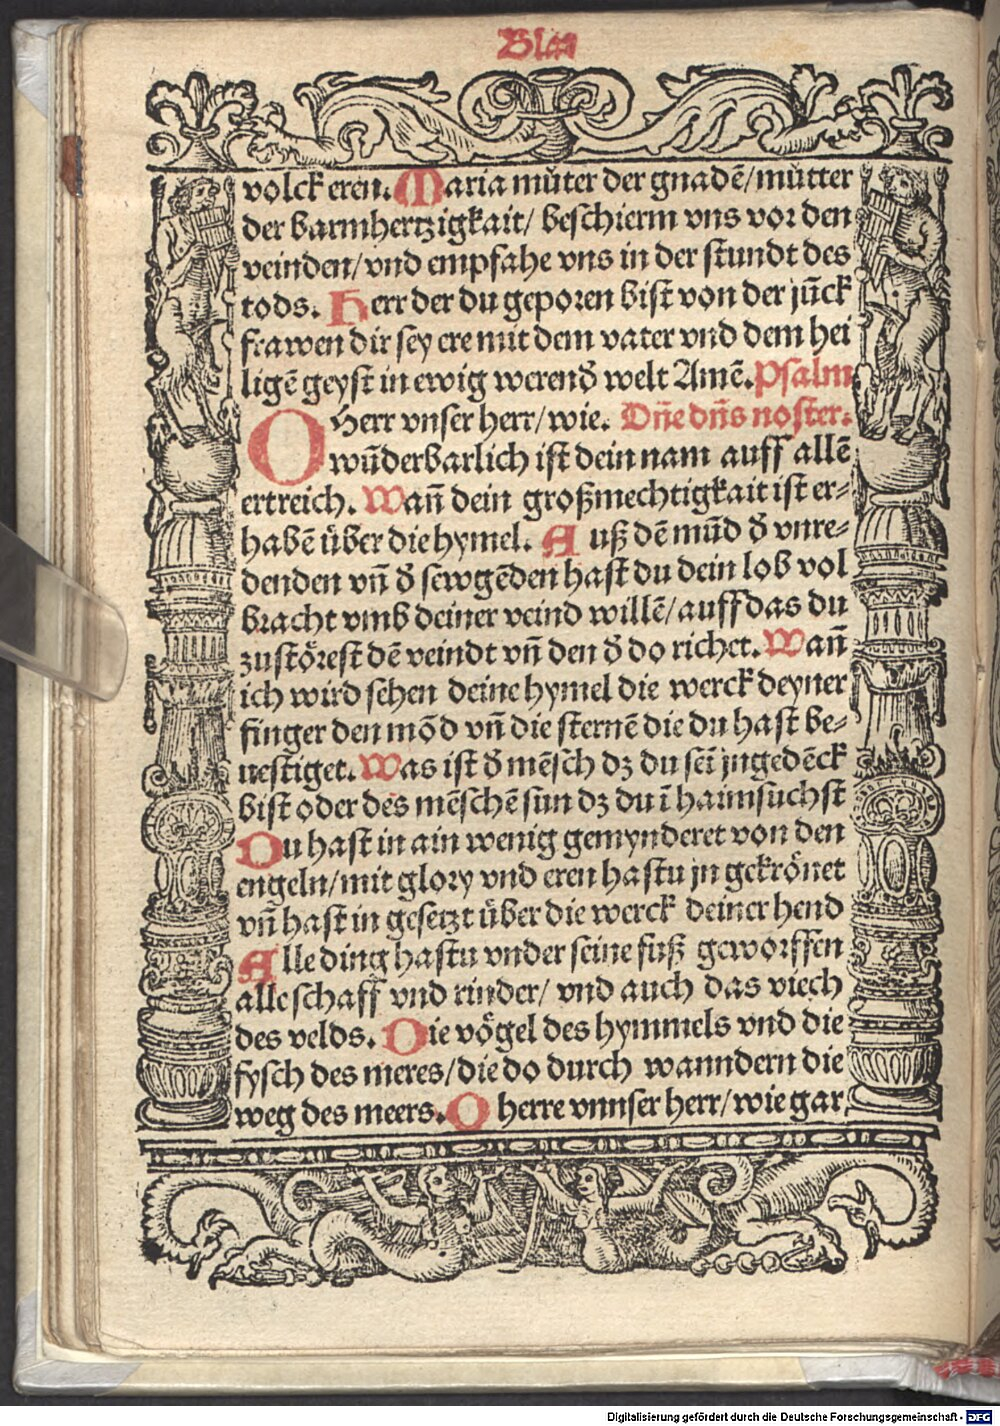 Blat
volck eren. Maria můter der gnadē/můtter
der barmhertzigkait/ beschierm vns vor den
veinden/vnd empfahe vns in der stundt des
tods. Herr der du geporen bist von der jūck
frawen dir sey ere mit dem vater vnd dem hei
ligē geyst in ewig werend̄ welt Amē. Psalm
O Herr vnser herr/wie. Dn̄e dn̄s noster.
wūderbarlich ist dein nam auff allē
ertreich. Wan̄ dein großmechtigkait ist er-
habē über die hymel. Auß dē mūd d̄ vnre-
denden vn̄ d̄ sewgēden hast du dein lob vol
bracht vmb deiner veind willē/auff das du
zustörest dē veindt vn̄ den d̄ do richet. Wan̄
ich wird sehen deine hymel die werck deyner
finger den mōd vn̄ die sternē die du hast be-
uestiget. Was ist d̄ mēsch dz du seī jngedēck
bist oder des mēschē sun dz du ī haimsuchst
Du hast in ain wenig gemynderet von den
engeln/mit glory vnd eren hastu jn gekrönet
vn̄ hast in gesetzt über die werck deiner hend
Alle ding hastu vnder seine fuß geworffen
alle schaff vnd rinder/ vnd auch das viech
des velds. Die vögel des hymmels vnd die
fysch des meres/die do durch wanndern die
weg des meers. O herre vnnser herr/wie gar
Digitalisierung gefördert durch die Deutsche Forschungsgemeinschaft - DFG